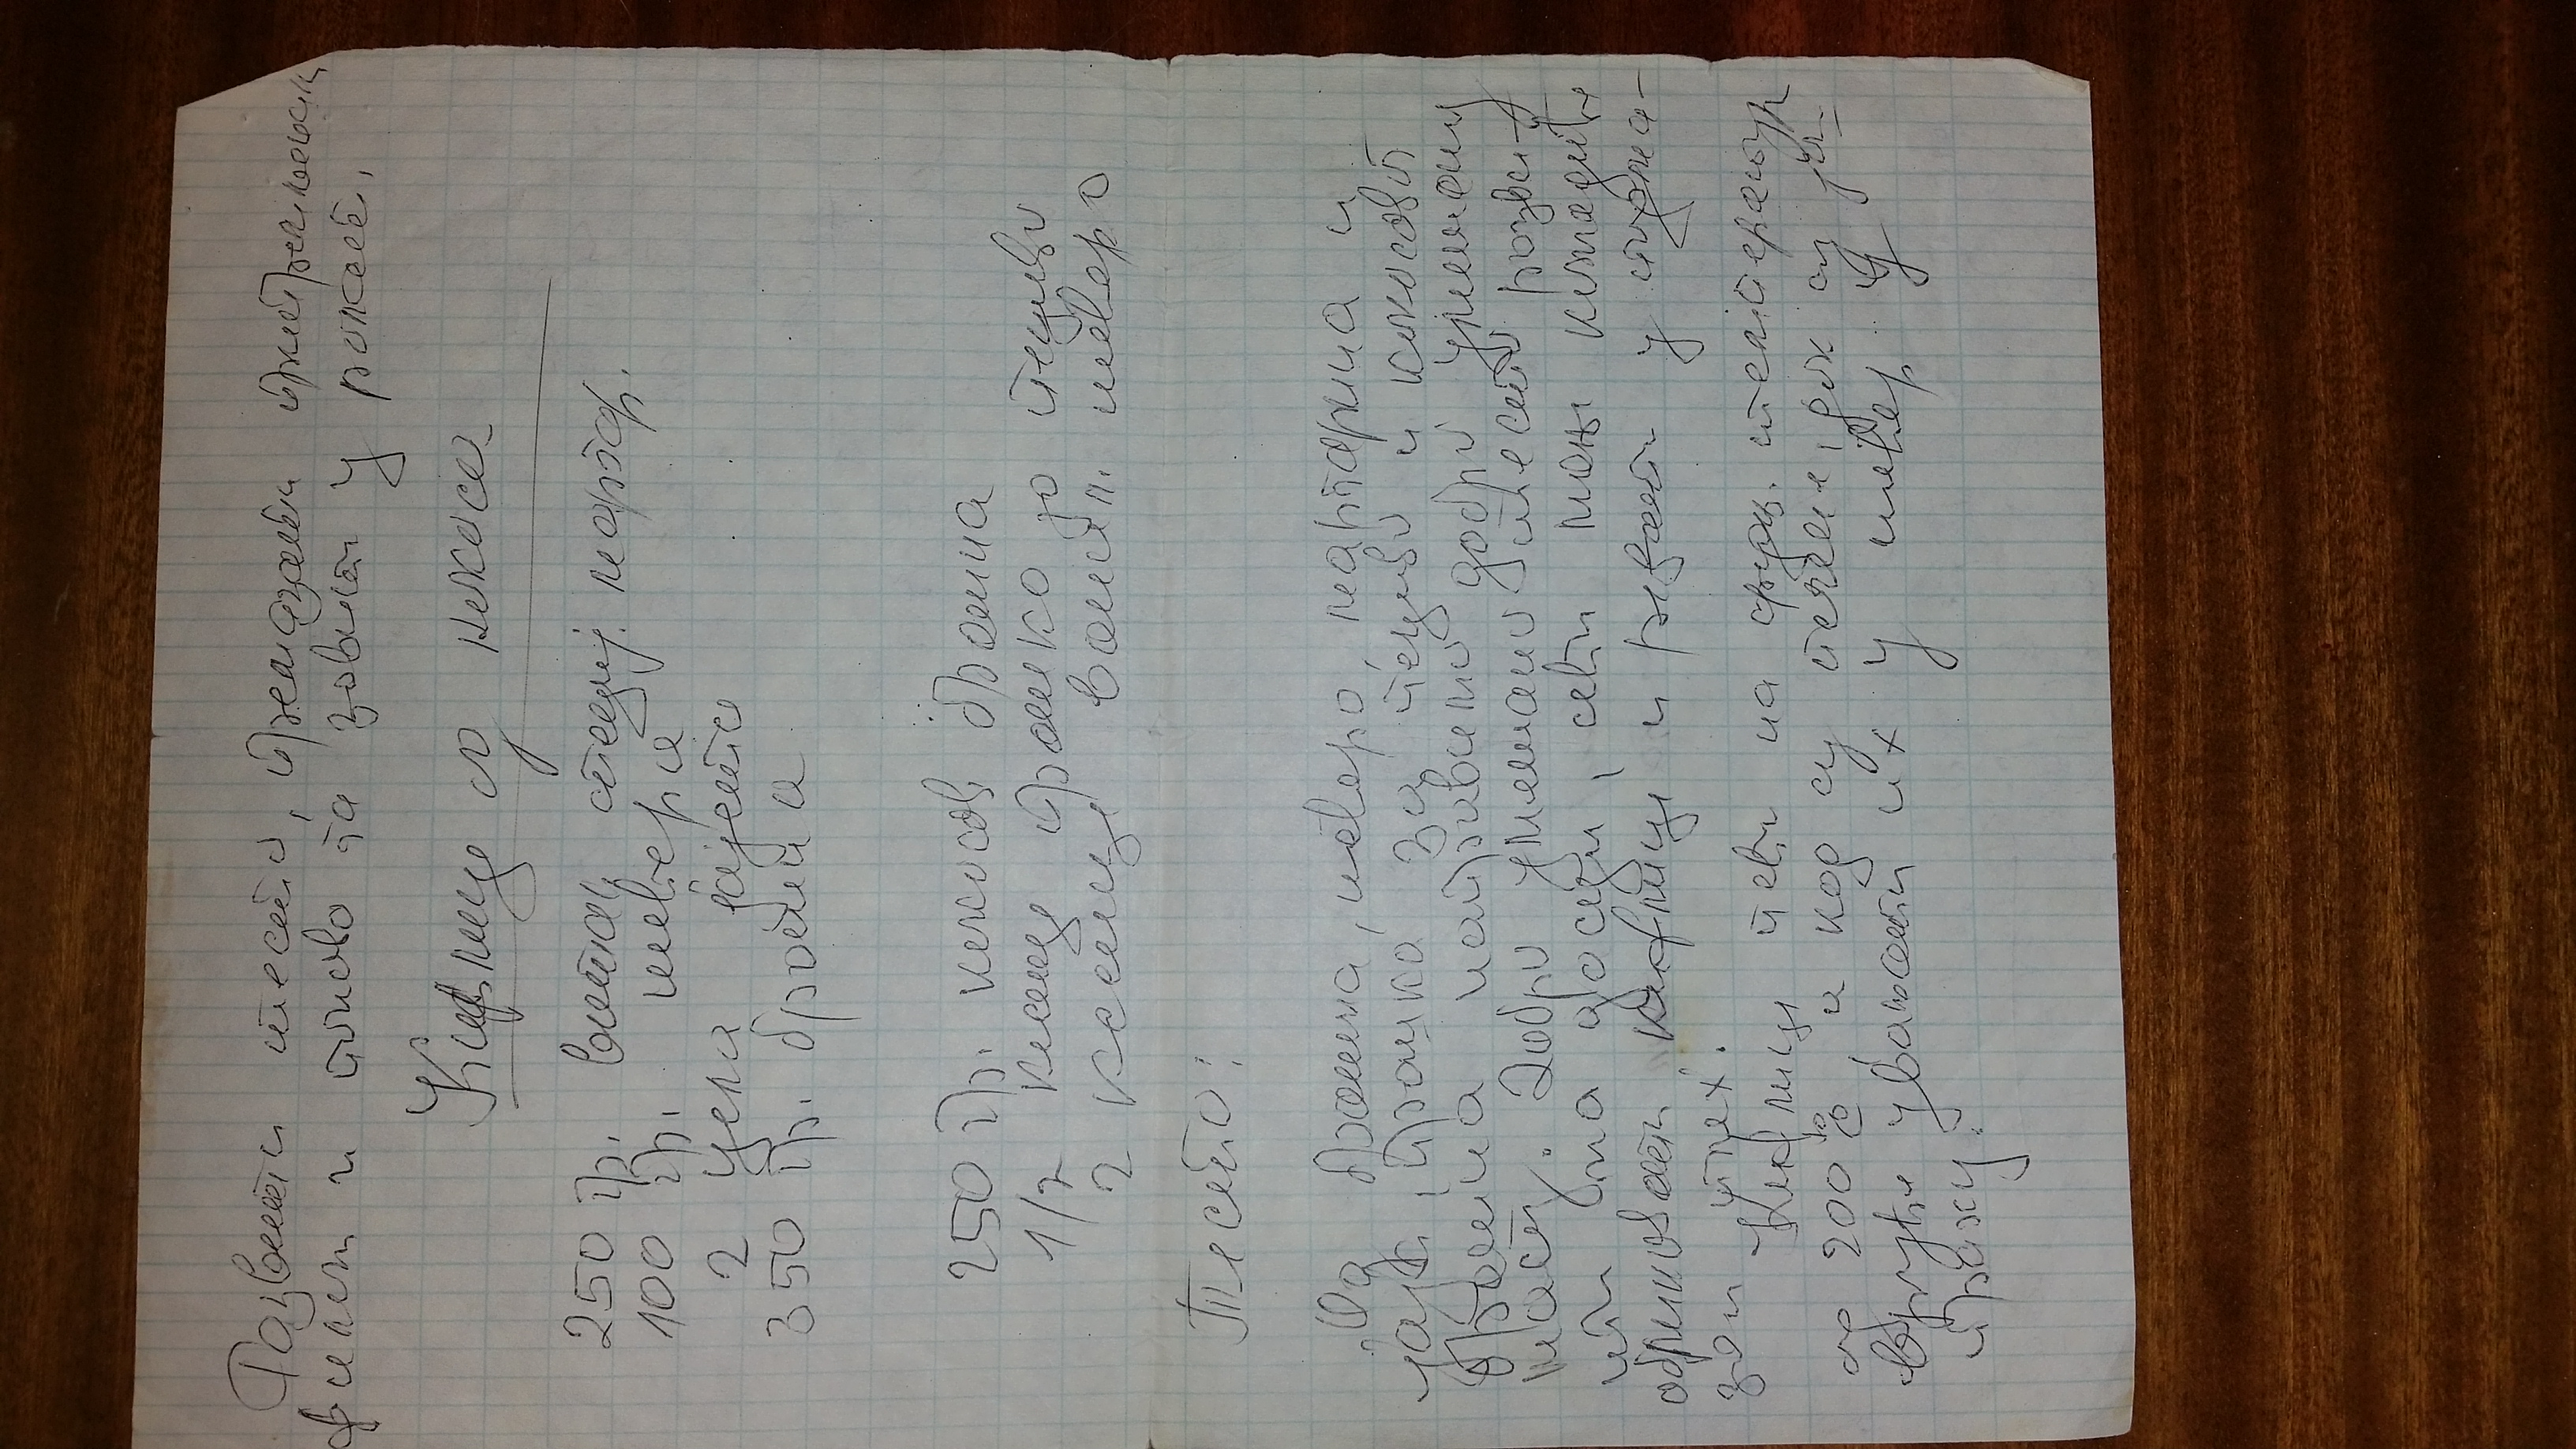 Развити тесто, премазати припремљеним
филом и поново га завити у ролат.
Кифлице од кокоса
250 гр. Витал специј. маргар.
100 гр. шећера
2 цела јајета
350 гр. брашна
250 гр. кокосов брашна
1/2 кесице прашка за пециво
2 кесице ванил. шећера
Тесто:
Од брашна, шећера, маргарина и
јаја, прашка за пециво и кокосовог
брашна направимо добро умешану
масу. Добро умешано тесто разви-
ти на дасци, сећи мање комадиће
обликовати кифлице и ређати у подма-
зан плех.
Кифлице пећи на температури
од 200°C, а кад су печене, док су још
вруће уваљати их у шећер у
праху.